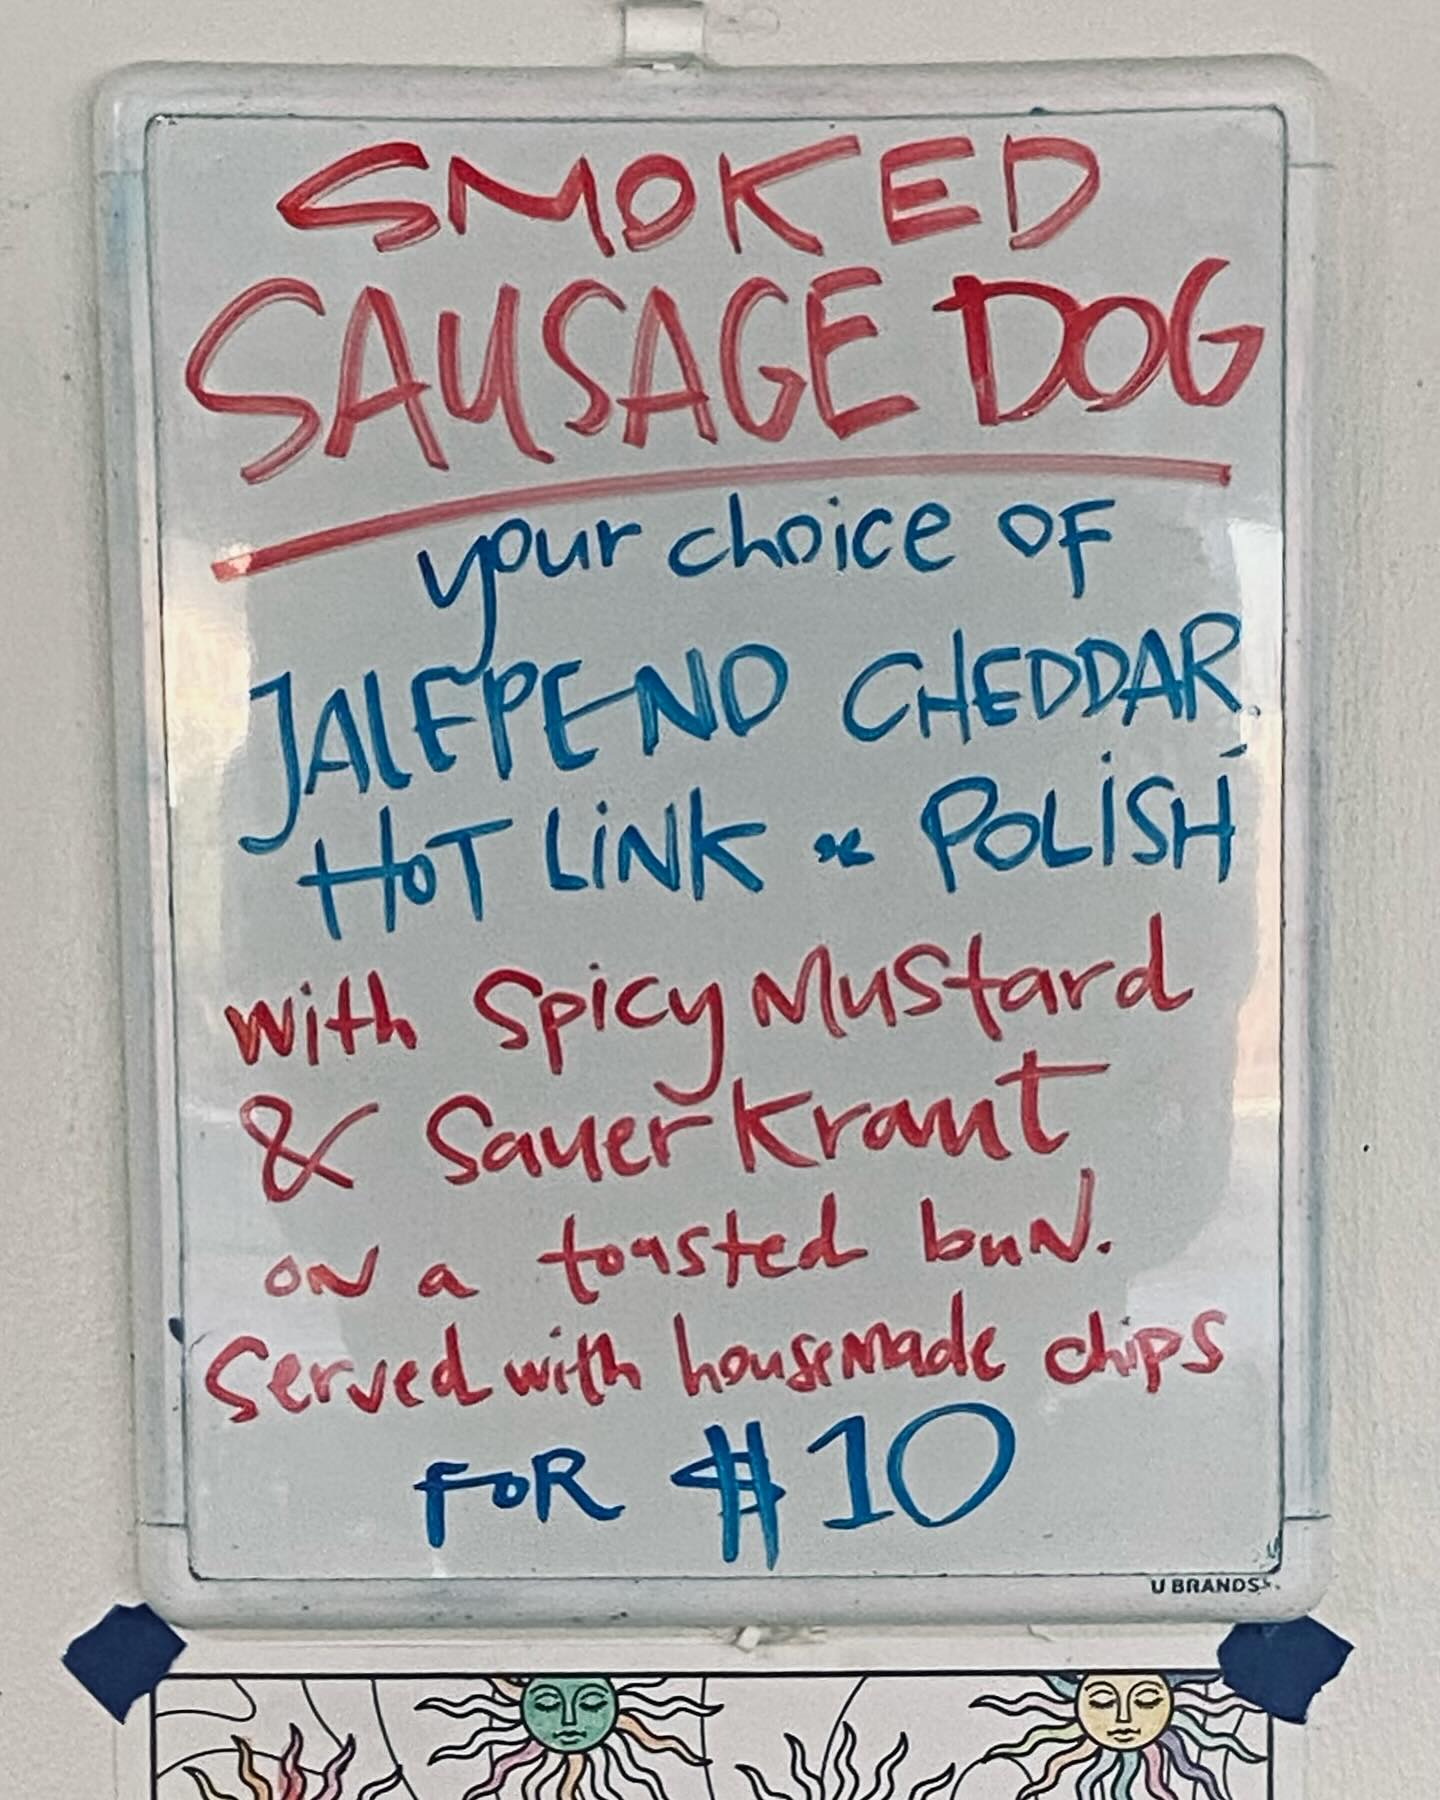 SMOKED
SAUSAGE DOG
your choice OF
JALEPENO CHEDDAR,
HOT LINK or POLISH
with Spicy Mustard
& Sauer Kraut
on a toasted buN.
Served with housemade chips
FOR $10
U BRANDS